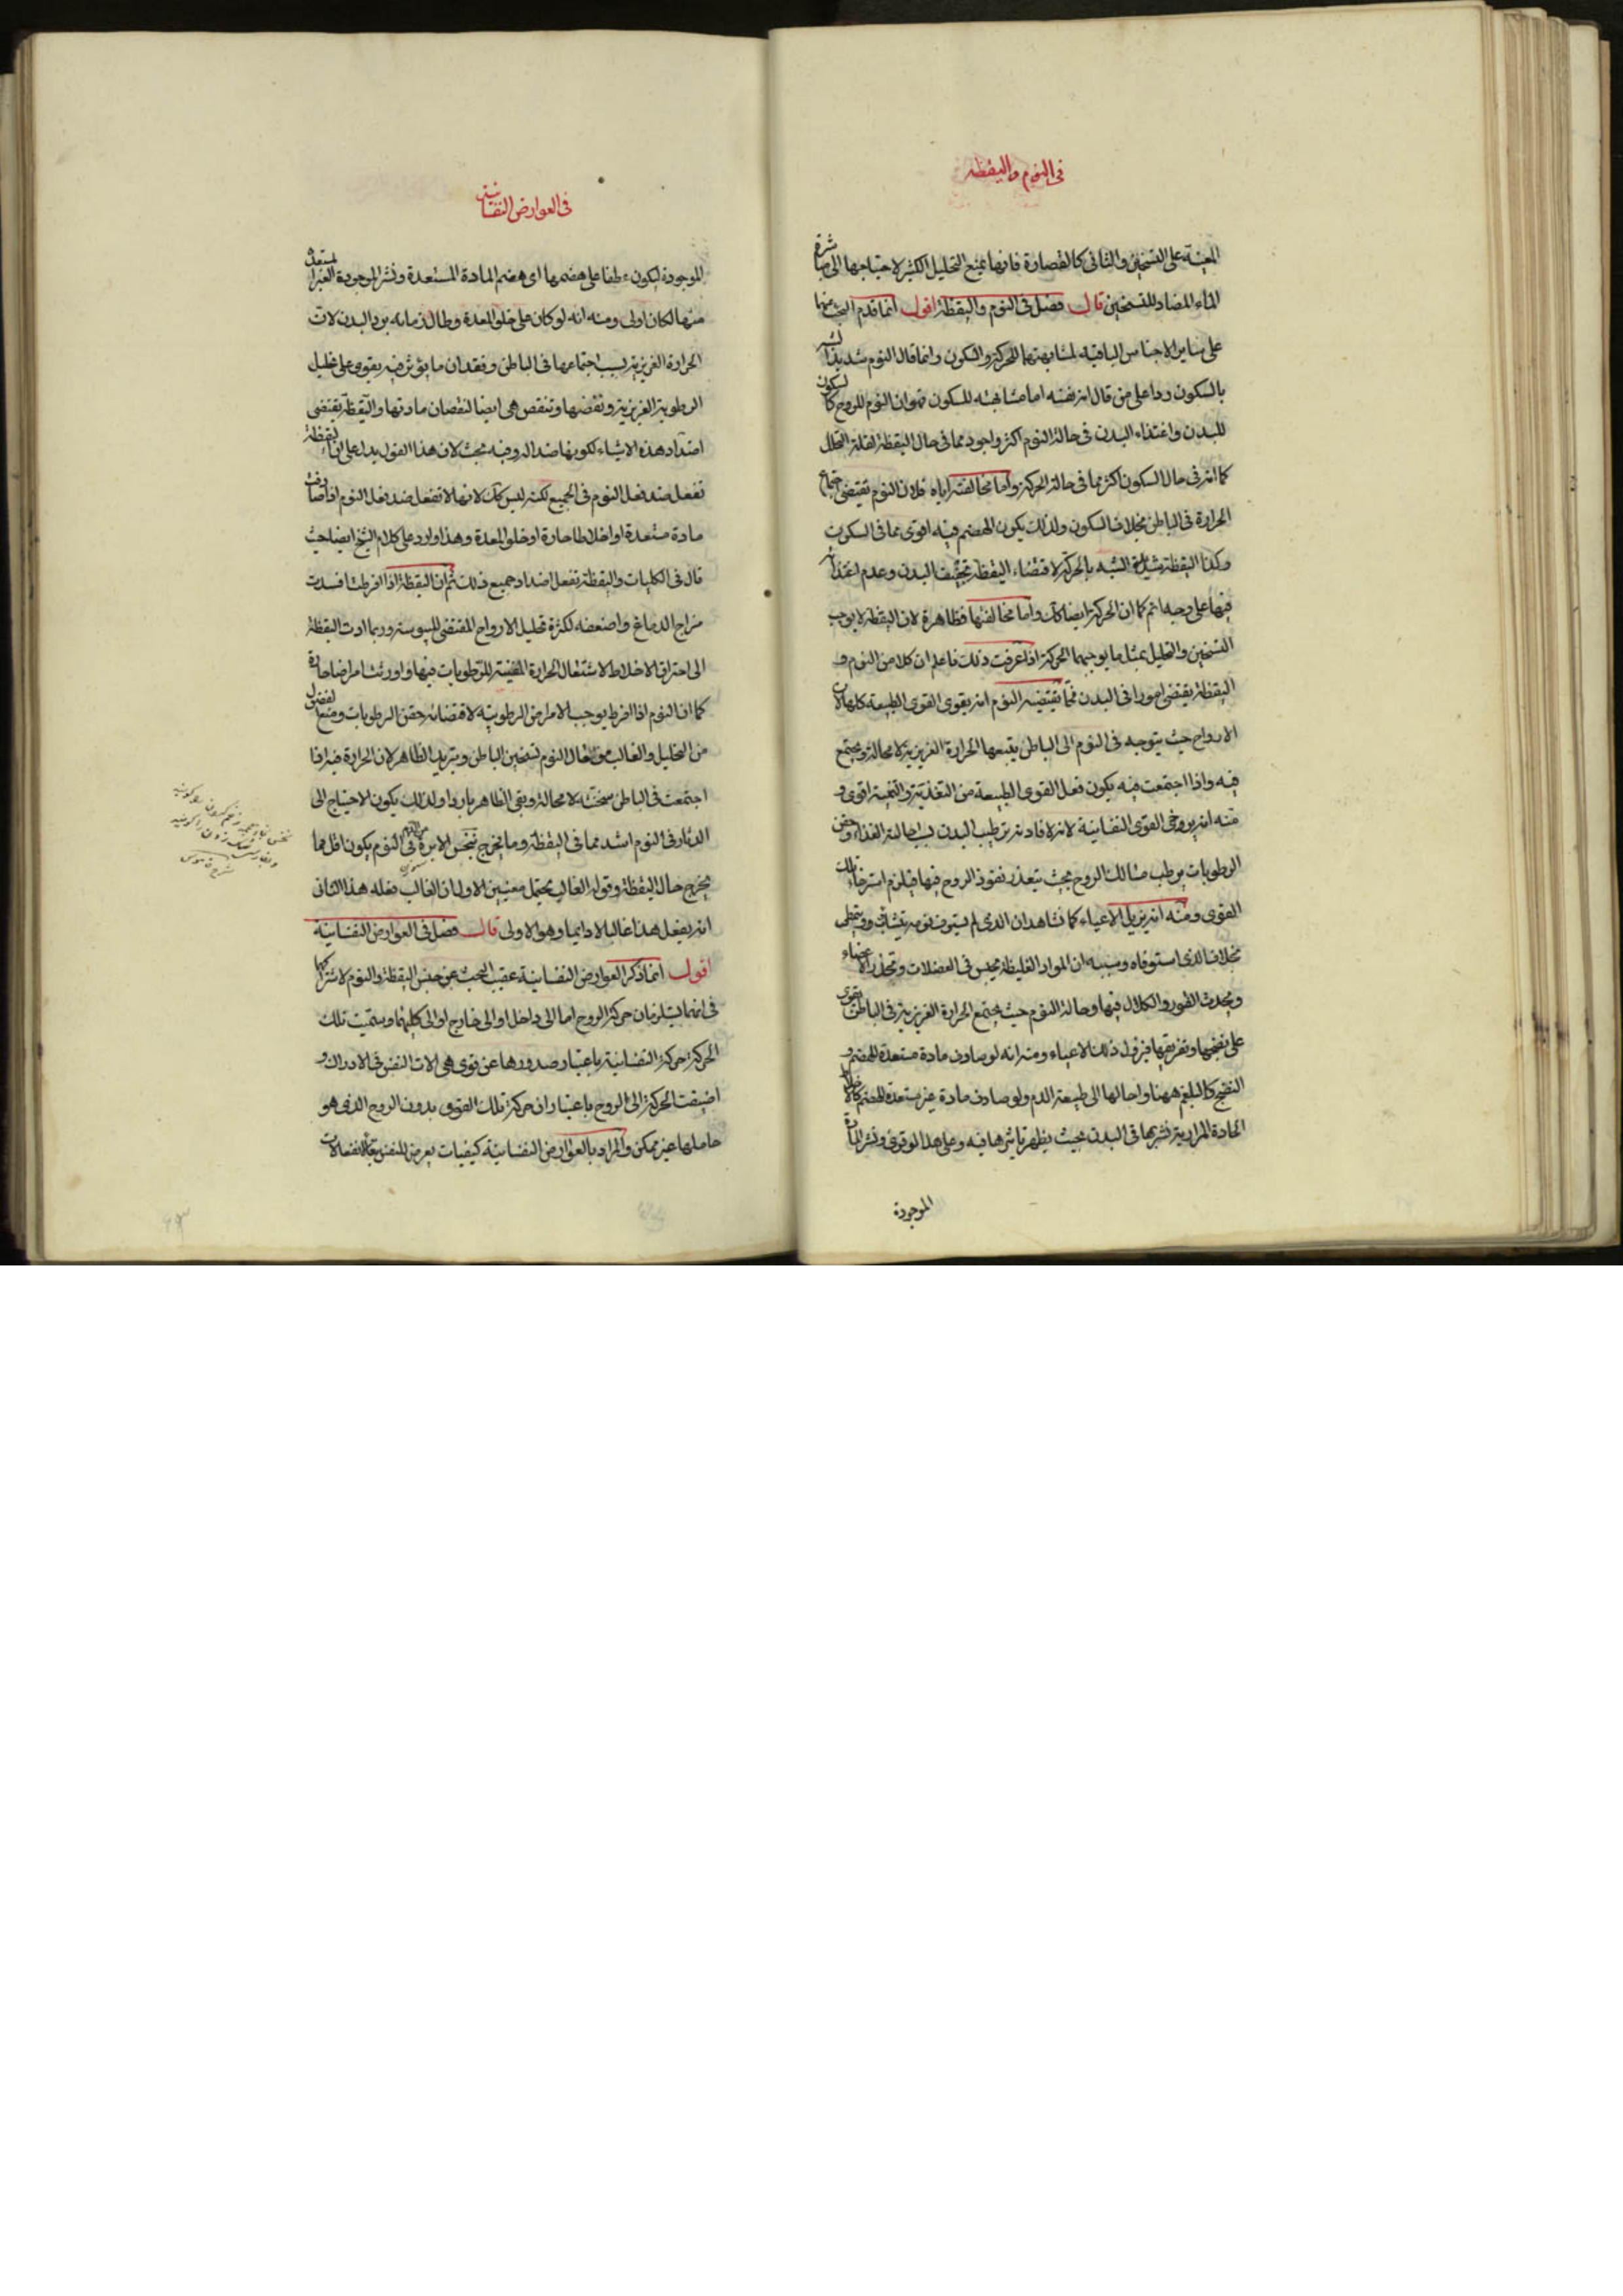 في النوم واليقظة
المعينة على التسخين والثاني كالقصارة فانها يمنع التحليل الكثير لاحتياجها الى مباشرة
الماء المضاد للتسخين قال فصل في النوم واليقظة اقول انما قدم البحث عنها
على ساير الاجناس الباقية لمشابهتها للحركة والسكون وانما قال النوم شديد الشبه
بالسكون ردا على من قال انه نفسه اما مشابهته للسكون فهو ان النوم للروح كالسكون
للبدن واغتذاء البدن في حالة النوم اكثر واجود مما في حال اليقظة لقلة التحلل
كما انه في حال السكون اكثر مما في حالة الحركة واما مخالفته اياه فلان النوم يقتضي اجتماع
الحرارة في الباطن بخلاف السكون ولذلك يكون الهضم فيه اقوى مما في السكون
وكذا اليقظة شديدة الشبه بالحركة لاقتضاء اليقظة تجفيف البدن وعدم اغتذائه
فيها على وجه اتم كما ان الحركة ايضا كك واما مخالفتها فظاهرة لان اليقظة لا يوجب
التسخين والتحليل بمثل ما يوجبهما الحركة اذا عرفت ذلك فاعلم ان كلا من النوم و
اليقظة يقتضي امورا في البدن فما يقتضيه النوم انه يقوى القوى الطبيعة كلها لان
الارواح حيث يتوجه في النوم الى الباطن يتبعها الحرارة الغريزية لا محالة ويجتمع
فيه واذا اجتمعت فيه يكون فعل القوى الطبيعة من التغذية والتنمية اقوى و
منه انه يرخي القوى النفسانية لانه لافادته ترطيب البدن بسبب احالة الغذاء وحقن
الرطوبات يرطب مسالك الروح بحيث يتعذر نفوذ الروح فيها فيلزم استرخاء تلك
القوى ومنه انه يزيل الاعياء كما نشاهد ان الذي لم يستوف نومه يتثاب ويتمطى
بخلاف الذي استوفاه وسببه ان المواد الغليظة يحبس في العضلات وتخدر الاعضاء
ويحدث الفتور والكلال فيها وحالة النوم حيث يجتمع الحرارة الغريزية في الباطن يقوى
على نضجها وتفريقها فيزول ذلك الاعياء ومنه انه لو صادف مادة مستعدة للهضم و
النضج كالبلغم هضمها واحالها الى طبيعة الدم ولو صادف مادة غير مستعدة للهضم كالاخلاط
الحادة المرارية نشرها في البدن بحيث يظهر تاثيرها فيه وعلى هذا لو قوى ونشر المادة
الموجودة
في العوارض النفسانية
الموجودة ليكون عطفا على هضمها اى هضم المادة المستعدة ونشر الموجودة الغير المستعدة
منها لكان اولى ومنه انه لو كان على خلو المعدة وطال زمانه برد البدن لان
الحرارة الغريزية بسبب اجتماعها في الباطن وفقدان ما يؤثر فيه يقوى على تحليل
الرطوبة الغريزية ونقضها وتنقص هى ايضا لنقصان مادتها واليقظة يقتضي
اضداد هذه الاشياء لكونها ضدا له وفيه بحث لان هذا القول يدل على ان اليقظة
تفعل ضد فعل النوم في الجميع لكنه ليس كك لانها لا تفعل ضد فعل النوم اذا صادفت
مادة مستعدة او اخلاطا حارة او خلو المعدة وهذا وارد على كلام الشيخ ايضا حيث
قال في الكليات واليقظة تفعل اضداد جميع ذلك ثم ان اليقظة اذا افرطت افسدت
مزاج الدماغ واضعفه لكثرة تحليل الارواح المقتضى لليبوسة وربما ادت اليقظة
الى احتراق الاخلاط لاشتعال الحرارة المفنية للرطوبات فيها واورثت امراضا حادة
كما ان النوم اذا افرط يوجب الامراض الرطوبية لاقتضائه حقن الرطوبات ومنع الفضول
من التحليل والغالب من افعال النوم تسخين الباطن وتبريد الظاهر لان الحرارة فيه اذا
اجتمعت في الباطن سخنته لا محالة وبقى الظاهر باردا ولذلك يكون الاحتياج الى
الدثار في النوم اشد مما في اليقظة وما يخرج بنخس الابرة من الدم في النوم يكون اقل مما
يخرج حالة اليقظة وقوله الغالب يحتمل معنيين الاول ان الغالب فعله هذا الثاني
انه يفعل هذا غالبا لا دايما وهو الاولى قال فصل في العوارض النفسانية
اقول انما ذكر العوارض النفسانية عقيب البحث عن جنس اليقظة والنوم لاشتراكها
في انهما يستلزمان حركة الروح اما الى داخل او الى خارج او الى كليهما وسميت تلك
الحركة حركة النفسانية باعتبار صدورها عن قوى هى الات النفس في الادراك و
اضيفت الحركة الى الروح باعتبار ان حركة تلك القوى بدون الروح الذي هو
حاملها غير ممكن والمراد بالعوارض النفسانية كيفيات يعرض للنفس تبعا لانفعالات